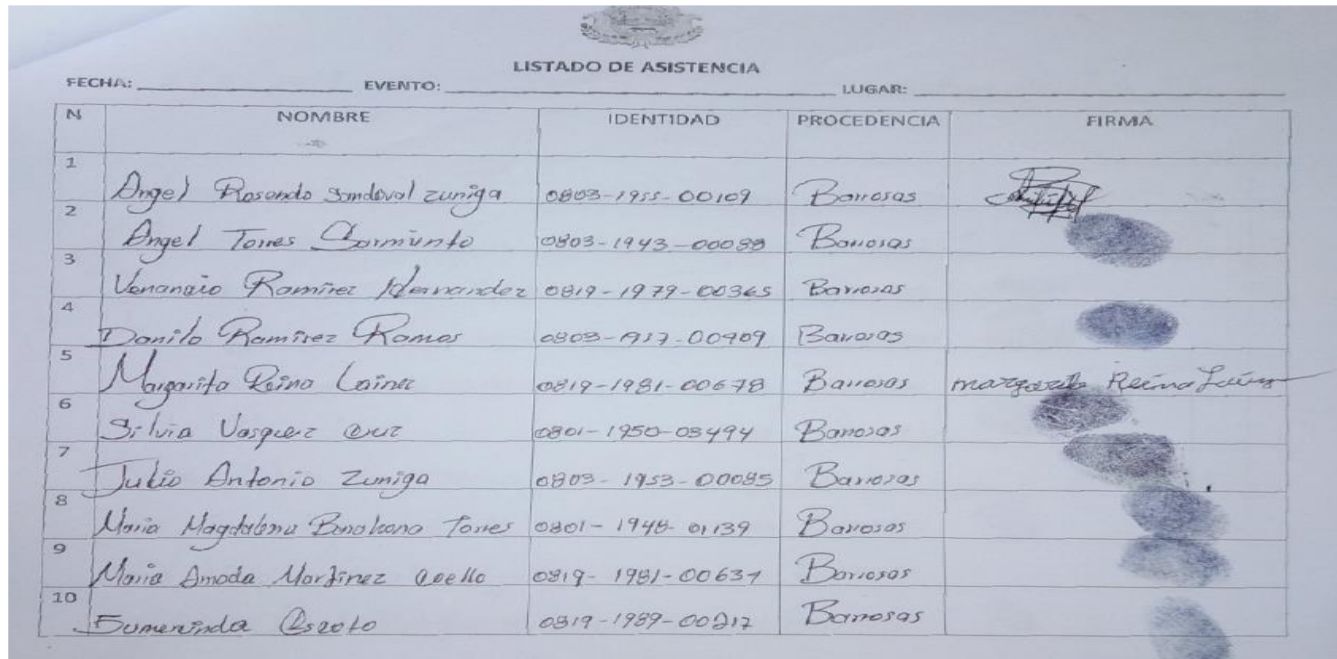 LISTADO DE ASISTENCIA
FECHA: EVENTO: LUGAR:
N NOMBRE IDENTIDAD PROCEDENCIA FIRMA
1 Angel Rosendo Sandoval zuniga 0803-1955-00109 Barrosas
2 Angel Torres Sarmiento 0803-1943-00088 Barrosas
3 Venancio Ramirez Hernandez 0819-1979-00365 Barrosas
4 Danilo Ramirez Ramos Barrosas
5 Margarita Reina Lainez 0819-1981-00678 Barrosas margarita Reina Lainez
6 Silvia Vasquez Cruz 0801-1950-03494 Barrosas
7 Julio Antonio Zuniga 0803-1953-00085 Barrosas
8 Maria Magdalena Torres 0801-1948-01139 Barrosas
9 Maria Amada Martinez Coello 0819-1981-00637 Barrosas
10 0819-1989-00217 Barrosas